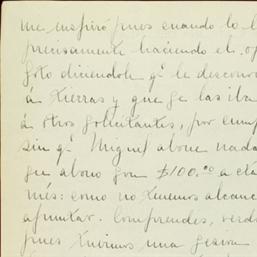 me inspiró pues cuando lo l
precisamente haciendo el op
foto diciendole q.e le desconoz
á tierras y que se las iba
á otros solicitantes, por cump
sin q.e Miguel abone nada
que abono gon $100.00 a cta
més: como no tenemos alcanc
apuntar. Comprendes, verd
pues tuvimos una sesion